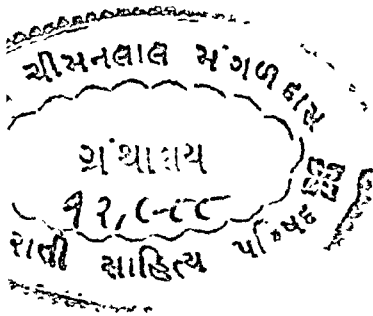 ચીમનલાલ મંગળદાસ
ગ્રંથાલય
રાતી સાહિત્ય પરિષદ